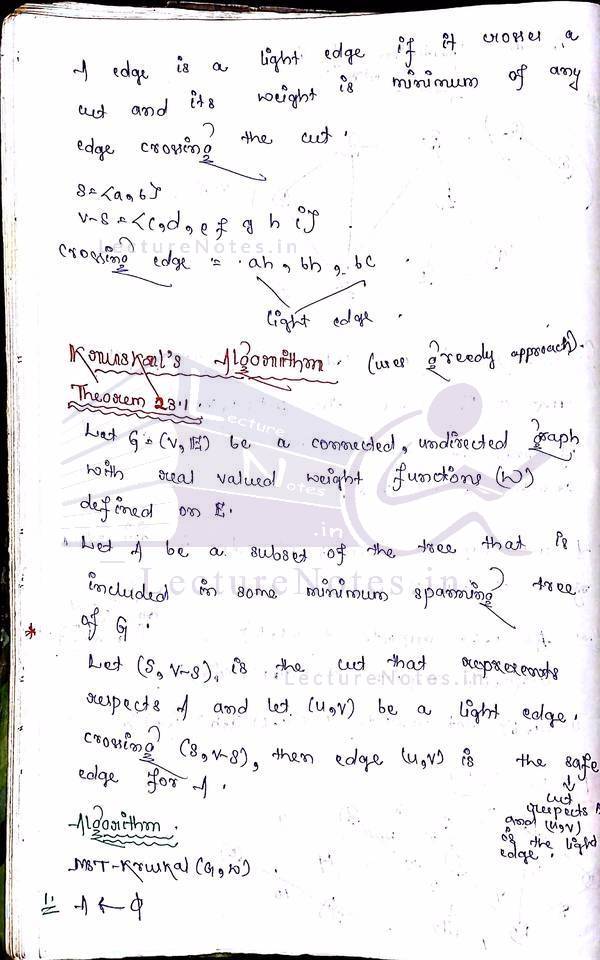 A edge is a light edge if it crosses a
cut and its weight is minimum of any
edge crossing the cut.
S = {a, b}
V-S = {c, d, e f g h i}
LectureNotes.in
crossing edge = ah, bh, bc
light edge.
Kruskal's Algorithm. (uses greedy approach).
Theorem 23.1.
Let G = (V, E) be a connected, undirected graph
with real valued weight functions (W)
defined on E.
Lecture Notes .in
Let A be a subset of the tree that is
LectureNotes.in
included in some minimum spanning tree
of G.
* Let (S, V-S), is the cut that represents
LectureNotes.in
respects A and let (u,v) be a light edge.
crossing (S, V-S), then edge (u,v) is the safe
edge for A.
↓
cut
respects A
and (u,v)
is the light
edge.
Algorithm.
MST-Kruskal (G, w).
1. A ← ϕ